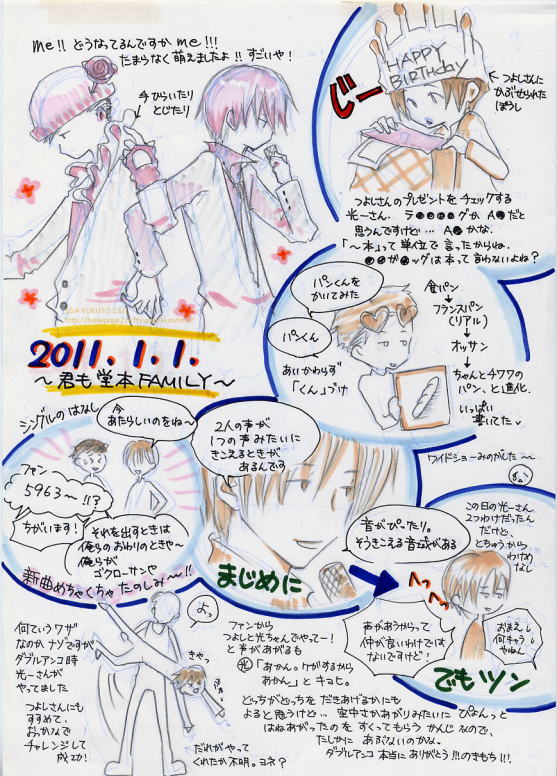 me!! どうなってるんですか me!!!
たまらなく萌えましたよ!! すごいや!
手ひらいたり
とじたり
HAPPY
BIRTHday
じー
← つよしさんに
かぶせられた
ぼうし
つよしさんのプレゼントをチェックする
光一さん… ラ●●●●グか A●だと
思うんですけど… A●かな。
「〜本」って単位で言ったからね。
●●が●ッグは本って言わないよね?
2011.1.1.
〜君も堂本FAMILY〜
パンくんを
かいてみた
パンくん
あいかわらず
「くん」づけ
食パン
↓
フランスパン
(リアル)
↓
オッサン
↓
ちゃんとチワワの
パン、と進化。
いっぱい
書いてた
シングルのはなし
今
あたらしいのをね〜
ファン
5963〜!!?
ちがいます!
それを出すときは
俺らのおわりのときや〜
俺らが
ゴクローサンや
新曲めちゃくちゃたのしみ〜!!
2人の声が
1つの声みたいに
きこえるときが
あるんです
まじめに
音がぴったり。
そうきこえる音域がある
ワイドショーみのがした〜〜
この日の光一さん
2つわけだったん
だけど、
とちゅうから
わけめ
なし
へっへっ
声があうからって
仲が良いわけでは
ないですけど!
おまえ
何キャラ
やねん
でもツン
何ていうワザ
なのか ナゾですが
ダブルアンコ時
光一さんが
やってました
つよしさんにも
すすめて、
おっかなで
チャレンジして
成功!
よっ
きゃっ
だれがやって
くれたか不明。ヨネ?
ファンから
つよしと光ちゃんでやってー!
と声があがるも
光「あかん。ケガするから
あかん」とキョヒ。
どっちがどっちを だきあげるかにも
よると思うけど… 空中さかあがりみたいに ぴょんっと
はねあがったのを すくってもらう かんじなので、
たしかに あぶないのかな。
ダブルアンコ 本当に ありがとう!!!のきもち!!!